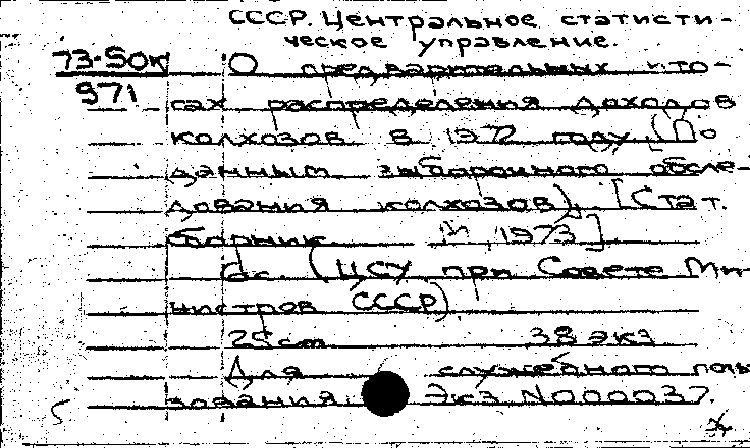 СССР. Центральное статисти-
ческое управление.
73-50к О предварительных ито-
971
гах распределения доходов
колхозов в 1972 году. (По
данным выборочного обсле-
дования колхозов). [Стат.
сборник. М., 1973].
6с. (ЦСУ при Совете Ми-
нистров СССР).
25cm 38 экз
Для служебного поль
зования. Экз. N000037.